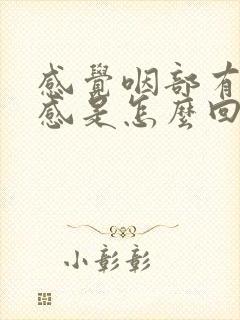 感覺咽部有
感是怎麼回
小彰彰